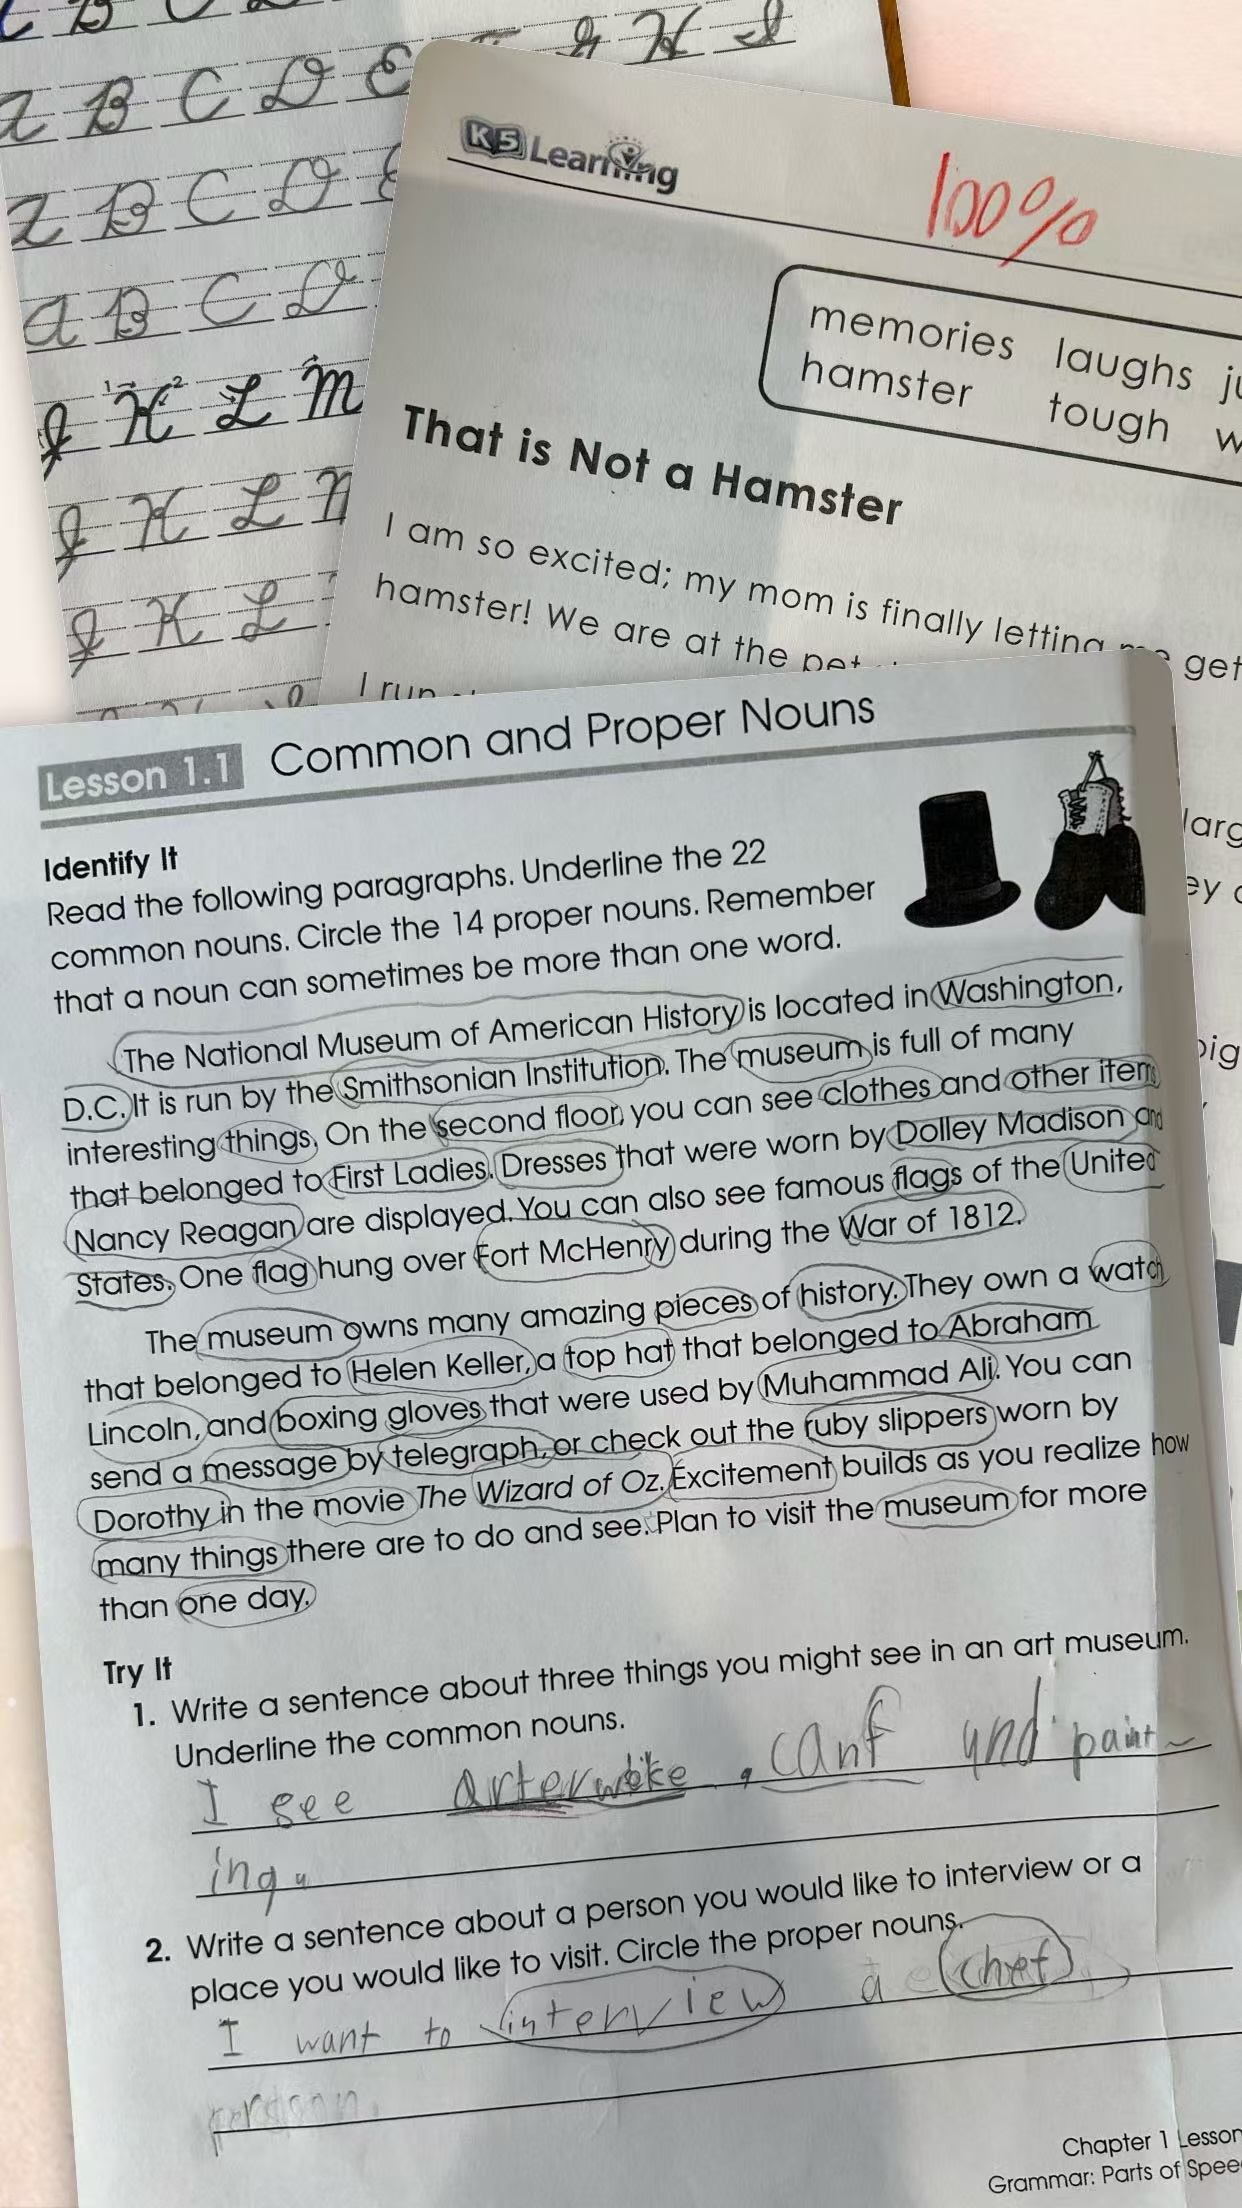 A B C D E F G H I
a B C D E
a B C D E
a B C D
J K L M
J K L M
J K L
K5 Learning
100%
memories laughs
hamster tough
That is Not a Hamster
I am so excited; my mom is finally letting me get
hamster! We are at the pet
I run
Lesson 1.1 Common and Proper Nouns
Identify It
Read the following paragraphs. Underline the 22
common nouns. Circle the 14 proper nouns. Remember
that a noun can sometimes be more than one word.
The National Museum of American History is located in Washington,
D.C. It is run by the Smithsonian Institution. The museum is full of many
interesting things. On the second floor, you can see clothes and other items
that belonged to First Ladies. Dresses that were worn by Dolley Madison and
Nancy Reagan are displayed. You can also see famous flags of the United
States. One flag hung over Fort McHenry during the War of 1812.
The museum owns many amazing pieces of history. They own a watch
that belonged to Helen Keller, a top hat that belonged to Abraham
Lincoln, and boxing gloves that were used by Muhammad Ali. You can
send a message by telegraph, or check out the ruby slippers worn by
Dorothy in the movie The Wizard of Oz. Excitement builds as you realize how
many things there are to do and see. Plan to visit the museum for more
than one day.
Try It
1. Write a sentence about three things you might see in an art museum.
Underline the common nouns.
I see and paint
ing
2. Write a sentence about a person you would like to interview or a
place you would like to visit. Circle the proper nouns.
I want to interview a chef
person.
Chapter 1 Lesson
Grammar: Parts of Spee